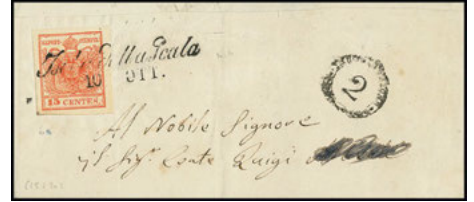 Isola della Scala
10 OTT.
15 CENTES.
2
Al Nobile Signore
il Sig.r Conte Luigi